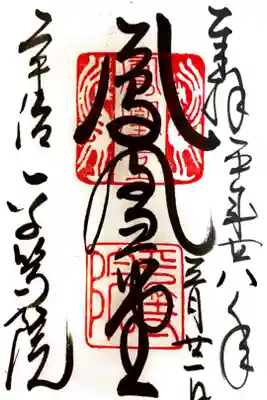 奉拝 平成廿八年
月廿一日
鳳凰堂
宇治 平等院